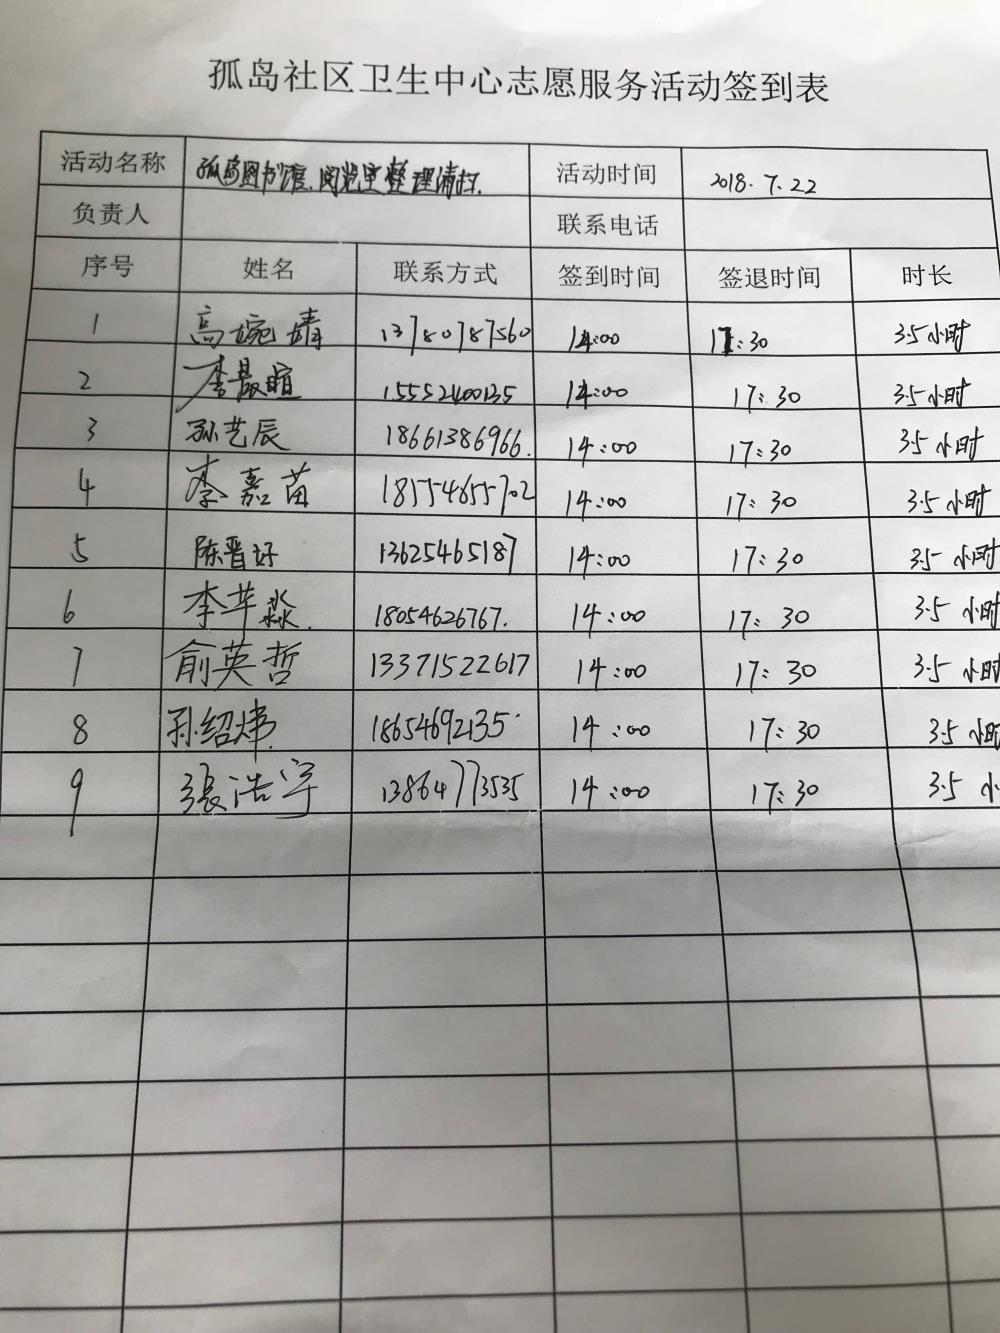 孤岛社区卫生中心志愿服务活动签到表
活动名称 孤岛图书馆、阅览室整理清扫. 活动时间 2018.7.22
负责人 联系电话
序号 姓名 联系方式 签到时间 签退时间 时长
1 高婉婧 13780787560 14:00 17:30 3.5小时
2 李晨暄 15552400135 14:00 17:30 3.5小时
3 孙艺辰 18661386966. 14:00 17:30 3.5小时
4 李嘉苗 18554655702 14:00 17:30 3.5小时
5 陈晋好 13625465187 14:00 17:30 3.5小时
6 李苹淼. 18054626767. 14:00 17:30 3.5小时
7 俞英哲 13371522617 14:00 17:30 3.5小时
8 孙绍炜. 18654692135. 14:00 17:30 3.5小时
9 张浩宇 13864773535 14:00 17:30 3.5小